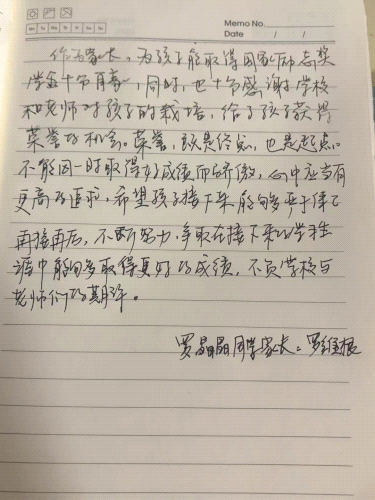 Memo No.
Mo Tu We Th Fr Sa Su
Date / /
作为家长，为孩子能取得国家励志奖
学金十分自豪，同时，也十分感谢学校
和老师对孩子的栽培，给了孩子获得
荣誉的机会。荣誉，既是终点，也是起点。
不能因一时取得好成绩而骄傲，心中应当有
更高的追求，希望孩子接下来能够严于律己
再接再厉，不断努力，争取在接下来的学程
中能够多取得更好的成绩，不负学校与
老师们的期许。
罗晶晶同学家长：罗维根